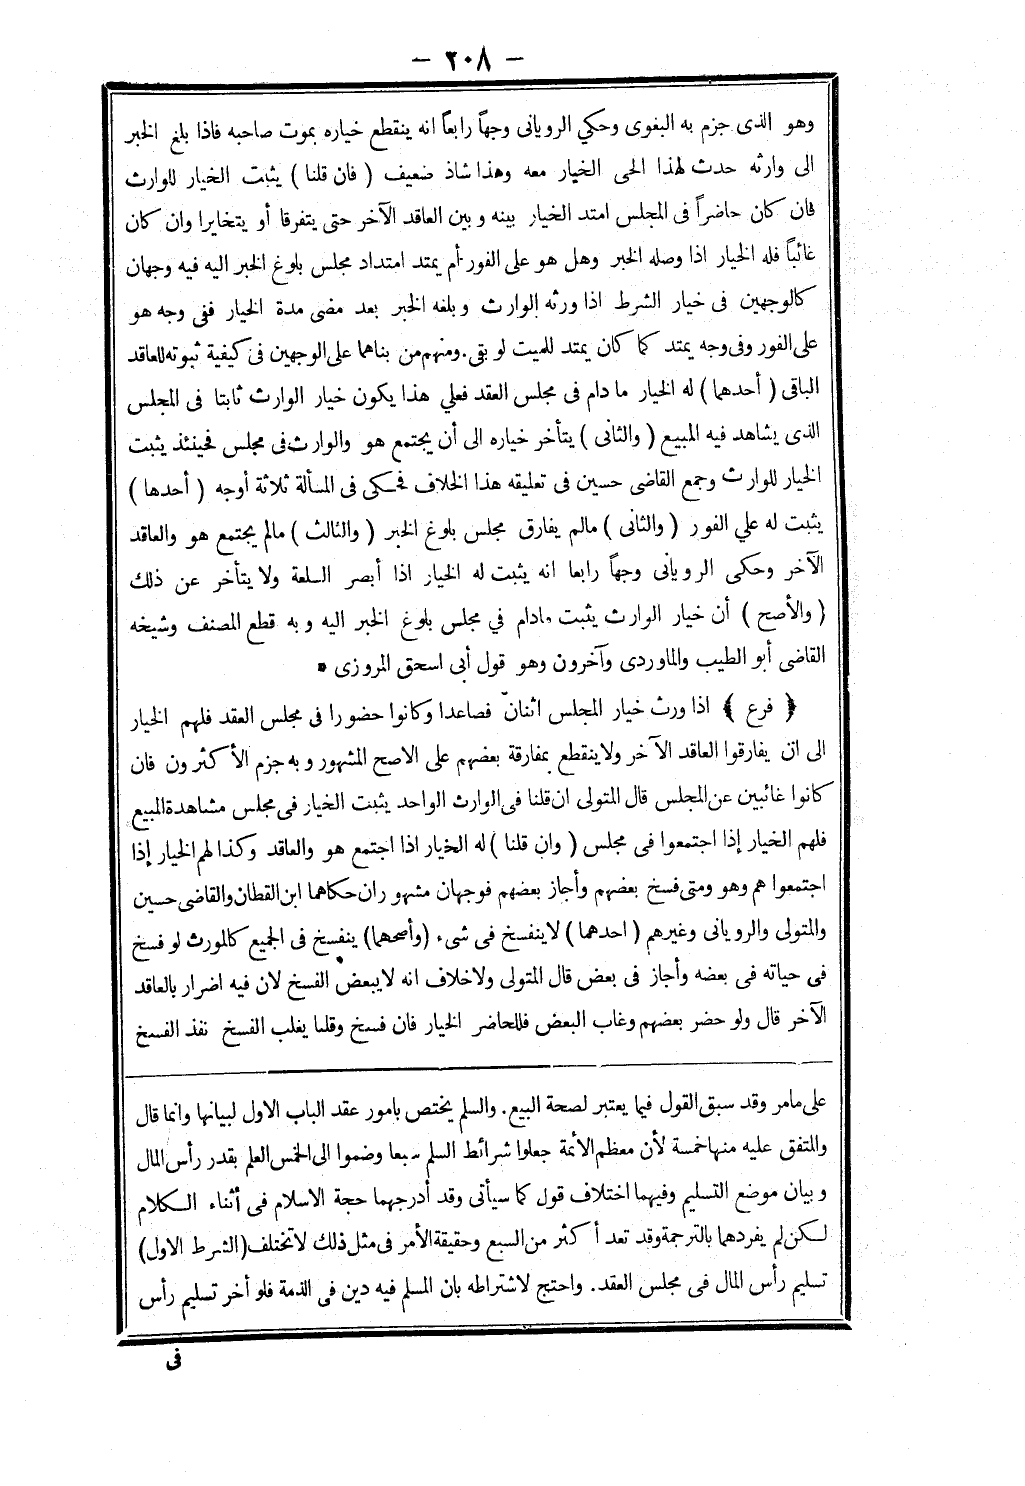 — ٢٠٨ —
وهو الذى جزم به البغوى وحكي الرويانى وجهاً رابعاً انه ينقطع خياره بموت صاحبه فاذا بلغ الخبر
الى وارثه حدث لهذا الحى الخيار معه وهذا شاذ ضعيف ( فان قلنا ) يثبت الخيار للوارث
فان كان حاضراً فى المجلس امتد الخيار بينه وبين العاقد الآخر حتى يتفرقا أو يتخايرا وان كان
غائباً فله الخيار اذا وصله الخبر وهل هو على الفور أم يمتد امتداد مجلس بلوغ الخبر اليه فيه وجهان
كالوجهين فى خيار الشرط اذا ورثه الوارث وبلغه الخبر بعد مضى مدة الخيار ففى وجه هو
على الفور وفى وجه يمتد كما كان يمتد للميت لو بقى. ومنهم من بناهما على الوجهين فى كيفية ثبوته للعاقد
الباقى ( أحدهما ) له الخيار ما دام فى مجلس العقد فعلي هذا يكون خيار الوارث ثابتا فى المجلس
الذى يشاهد فيه المبيع ( والثانى ) يتأخر خياره الى أن يجتمع هو والوارث فى مجلس فحينئذ يثبت
الخيار للوارث وجمع القاضى حسين فى تعليقه هذا الخلاف فحكى فى المسألة ثلاثة أوجه ( أحدها )
يثبت له علي الفور ( والثانى ) مالم يفارق مجلس بلوغ الخبر ( والثالث ) مالم يجتمع هو والعاقد
الآخر وحكى الرويانى وجهاً رابعا انه يثبت له الخيار اذا أبصر السلعة ولا يتأخر عن ذلك
( والأصح ) أن خيار الوارث يثبت مادام في مجلس بلوغ الخبر اليه وبه قطع المصنف وشيخه
القاضى أبو الطيب والماوردى وآخرون وهو قول أبى اسحق المروزى *
﴿ فرع ﴾ اذا ورث خيار المجلس اثنان فصاعدا وكانوا حضورا فى مجلس العقد فلهم الخيار
الى ان يفارقوا العاقد الآخر ولا ينقطع بمفارقة بعضهم على الاصح المشهور وبه جزم الأكثرون فان
كانوا غائبين عن المجلس قال المتولى ان قلنا فى الوارث الواحد يثبت الخيار فى مجلس مشاهدة المبيع
فلهم الخيار إذا اجتمعوا فى مجلس ( وان قلنا ) له الخيار اذا اجتمع هو والعاقد وكذا لهم الخيار إذا
اجتمعوا هم وهو ومتى فسخ بعضهم وأجاز بعضهم فوجهان مشهوران حكاهما ابن القطان والقاضى حسين
والمتولى والرويانى وغيرهم ( احدهما ) لا ينفسخ فى شىء (وأصحهما) ينفسخ فى الجميع كالمورث لو فسخ
فى حياته فى بعضه وأجاز فى بعض قال المتولى ولا خلاف انه لا يبعض الفسخ لان فيه اضرار بالعاقد
الآخر قال ولو حضر بعضهم وغاب البعض فللحاضر الخيار فان فسخ وقلنا يغلب الفسخ نفذ الفسخ
على مامر وقد سبق القول فيما يعتبر لصحة البيع. والسلم يختص بامور عقد الباب الاول لبيانها وانما قال
والمتفق عليه منها خمسة لأن معظم الأئمة جعلوا شرائط السلم سبعا وضموا الى الخمس العلم بقدر رأس المال
وبيان موضع التسليم وفيهما اختلاف قول كما سيأتى وقد أدرجهما حجة الاسلام فى أثناء الكلام
لكن لم يفردهما بالترجمة وقد تعد أكثر من السبع وحقيقة الأمر فى مثل ذلك لا تختلف (الشرط الاول)
تسليم رأس المال فى مجلس العقد. واحتج لاشتراطه بان المسلم فيه دين فى الذمة فلو أخر تسليم رأس
فى